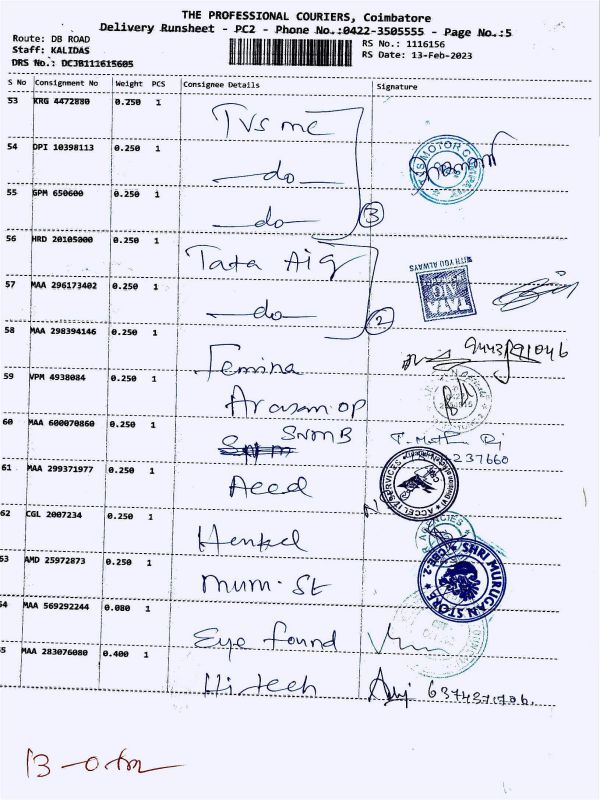 THE PROFESSIONAL COURIERS, Coimbatore
Delivery Runsheet - PC2 - Phone No.:0422-3505555 - Page No.:5
Route: DB ROAD
Staff: KALIDAS
DRS No.: DCJB111615605
RS No.: 1116156
RS Date: 13-Feb-2023
S No Consignment No Weight PCS Consignee Details Signature
53 KRG 4472880 0.250 1 TVS mc
54 DPI 10398113 0.250 1 —do—
55 GPM 650600 0.250 1 —do— 3
56 HRD 20105000 0.250 1 Tata Aig
WITH YOU ALWAYS
TATA AIG
57 MAA 296173402 0.250 1 —do— 2
58 MAA 298394146 0.250 1 Femina
59 VPM 4938084 0.250 1 Arasan op
60 MAA 600070860 0.250 1 SNMB
237660
61 MAA 299371977 0.250 1
62 CGL 2007234 0.250 1 Henkel
AGENCIES
63 AMD 25972873 0.250 1 mum. St
SHRI MURUGAN STORE CBE-2
64 MAA 569292244 0.080 1 Eye found
65 MAA 283076080 0.400 1 Hitech